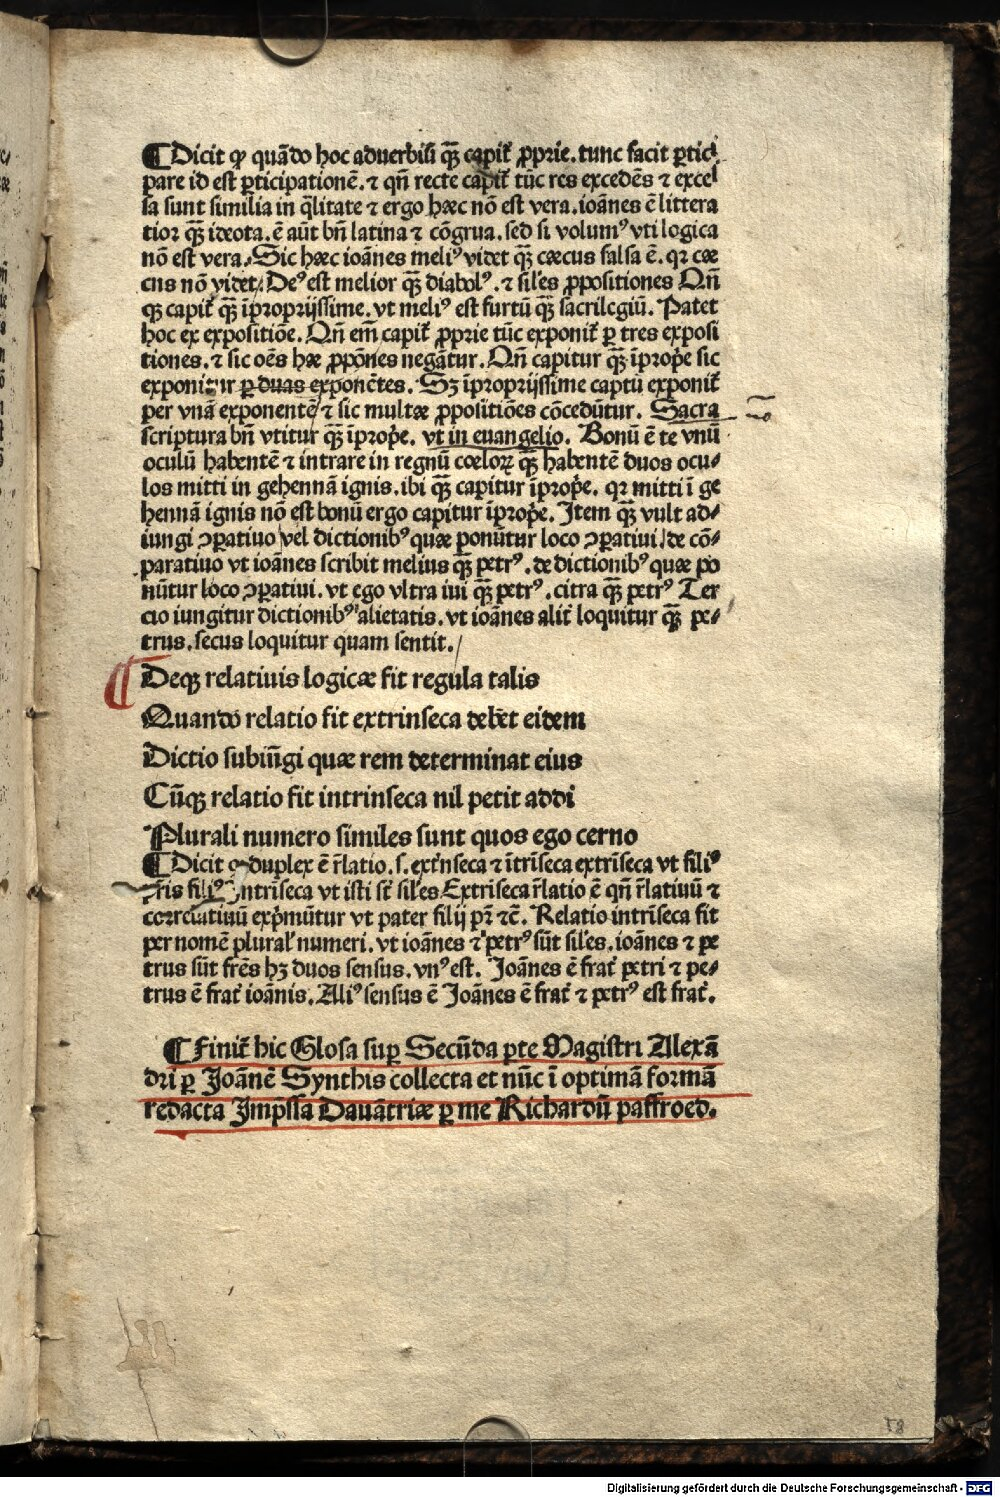 ¶Dicit ꝙ quãdo hoc aduerbiũ q̃ꝫ capit᷑ ꝓprie. tunc facit ꝑtici
pare id est ꝑticipationẽ. ⁊ qñ recte capit᷑ tũc res excedẽs ⁊ excel
sa sunt similia in q̃litate ⁊ ergo hæc nõ est vera. ioãnes ẽ littera
tior q̃ꝫ ideota. ẽ aũt bñ latina ⁊ cõgrua. sed si volumꝰ vti logica
nõ est vera. Sic hæc ioãnes meliꝰ videt q̃ꝫ cæcus falsa ẽ. qꝛ cæ
cus nõ videt. Deꝰ est melior q̃ꝫ diabolꝰ. ⁊ sil̃es ꝓpositiones Qñ
qꝫ capit᷑ q̃ꝫ ĩpropriissime. vt meliꝰ est furtũ q̃ꝫ sacrilegiũ. Patet
hoc ex expositiõe. Qñ em̃ capit᷑ ꝓprie tũc exponit᷑ ꝑ tres exposi
tiones. ⁊ sic oẽs hæ ꝓpõnes negãtur. Qñ capitur qꝫ ĩprop̃e sic
exponitur ꝑ duas exponẽtes. Sꝫ ĩpropriissime captũ exponit᷑
per vnã exponentẽ ⁊ sic multæ ꝓpositiões cõcedũtur. Sacra
scriptura bñ vtitur q̃ꝫ ĩprop̃e. vt in euangelio. Bonũ ẽ te vnũ
oculũ habentẽ ⁊ intrare in regnũ cœloꝝ q̃ꝫ habentẽ duos ocu⸗
los mitti in gehennã ignis. ibi q̃ꝫ capitur ĩprop̃e. qꝛ mitti ĩ ge
hennã ignis nõ est bonũ ergo capitur ĩprop̃e. Item q̃ꝫ vult ad⸗
iungi ꝯꝑatiuo vel dictionibꝰ quæ ponũtur loco ꝯꝑatiui. de cõ⸗
paratiuo vt ioãnes scribit melius q̃ꝫ petrꝰ. de dictionibꝰ quæ po
nũtur loco ꝯꝑatiui. vt ego vltra iui q̃ꝫ petrꝰ. citra q̃ꝫ petrꝰ Ter
cio iungitur dictionibꝰ alietatis. vt ioãnes alit᷑ loquitur q̃ꝫ pe⸗
trus. secus loquitur quam sentit.
¶ Deqꝫ relatiuis logicæ fit regula talis
Quando relatio fit extrinseca debẽt eidem
Dictio subiũgi quæ rem determinat eius
Cũqꝫ relatio fit intrinseca nil petit addi
Plurali numero similes sunt quos ego cerno
¶Dicit ꝙ duplex ẽ r̃latio. s. ext᷑nseca ⁊ ĩtrĩseca extrĩseca vt filiꝰ
ntrĩseca vt isti st̃ sil̃es Extrĩseca r̃latio ẽ qñ r̃latiuũ ⁊
correlatiuũ exp̃mũtur vt pater filij pr̃ ⁊c̃. Relatio intrĩseca fit
per nomẽ plural᷑ numeri. vt ioãnes ⁊ petrꝰ sũt sil̃es. ioãnes ⁊ pe
trus sũt fr̃es hꝫ duos sensus. vnꝰ est. Ioãnes ẽ frat᷑ petri ⁊ pe⸗
trus ẽ frat᷑ ioãnis. Aliꝰ sensus ẽ Ioãnes ẽ frat᷑ ⁊ petrꝰ est frat᷑.
¶Finit᷑ hic Glosa suꝑ Secũda ꝑte Magistri Alexã
dri ꝑ Ioãnẽ Synthis collecta et nũc ĩ optimã formã
redacta Imp̃ssa Dauãtriæ ꝑ me Richardũ paffroed.
58
Digitalisierung gefördert durch die Deutsche Forschungsgemeinschaft - DFG